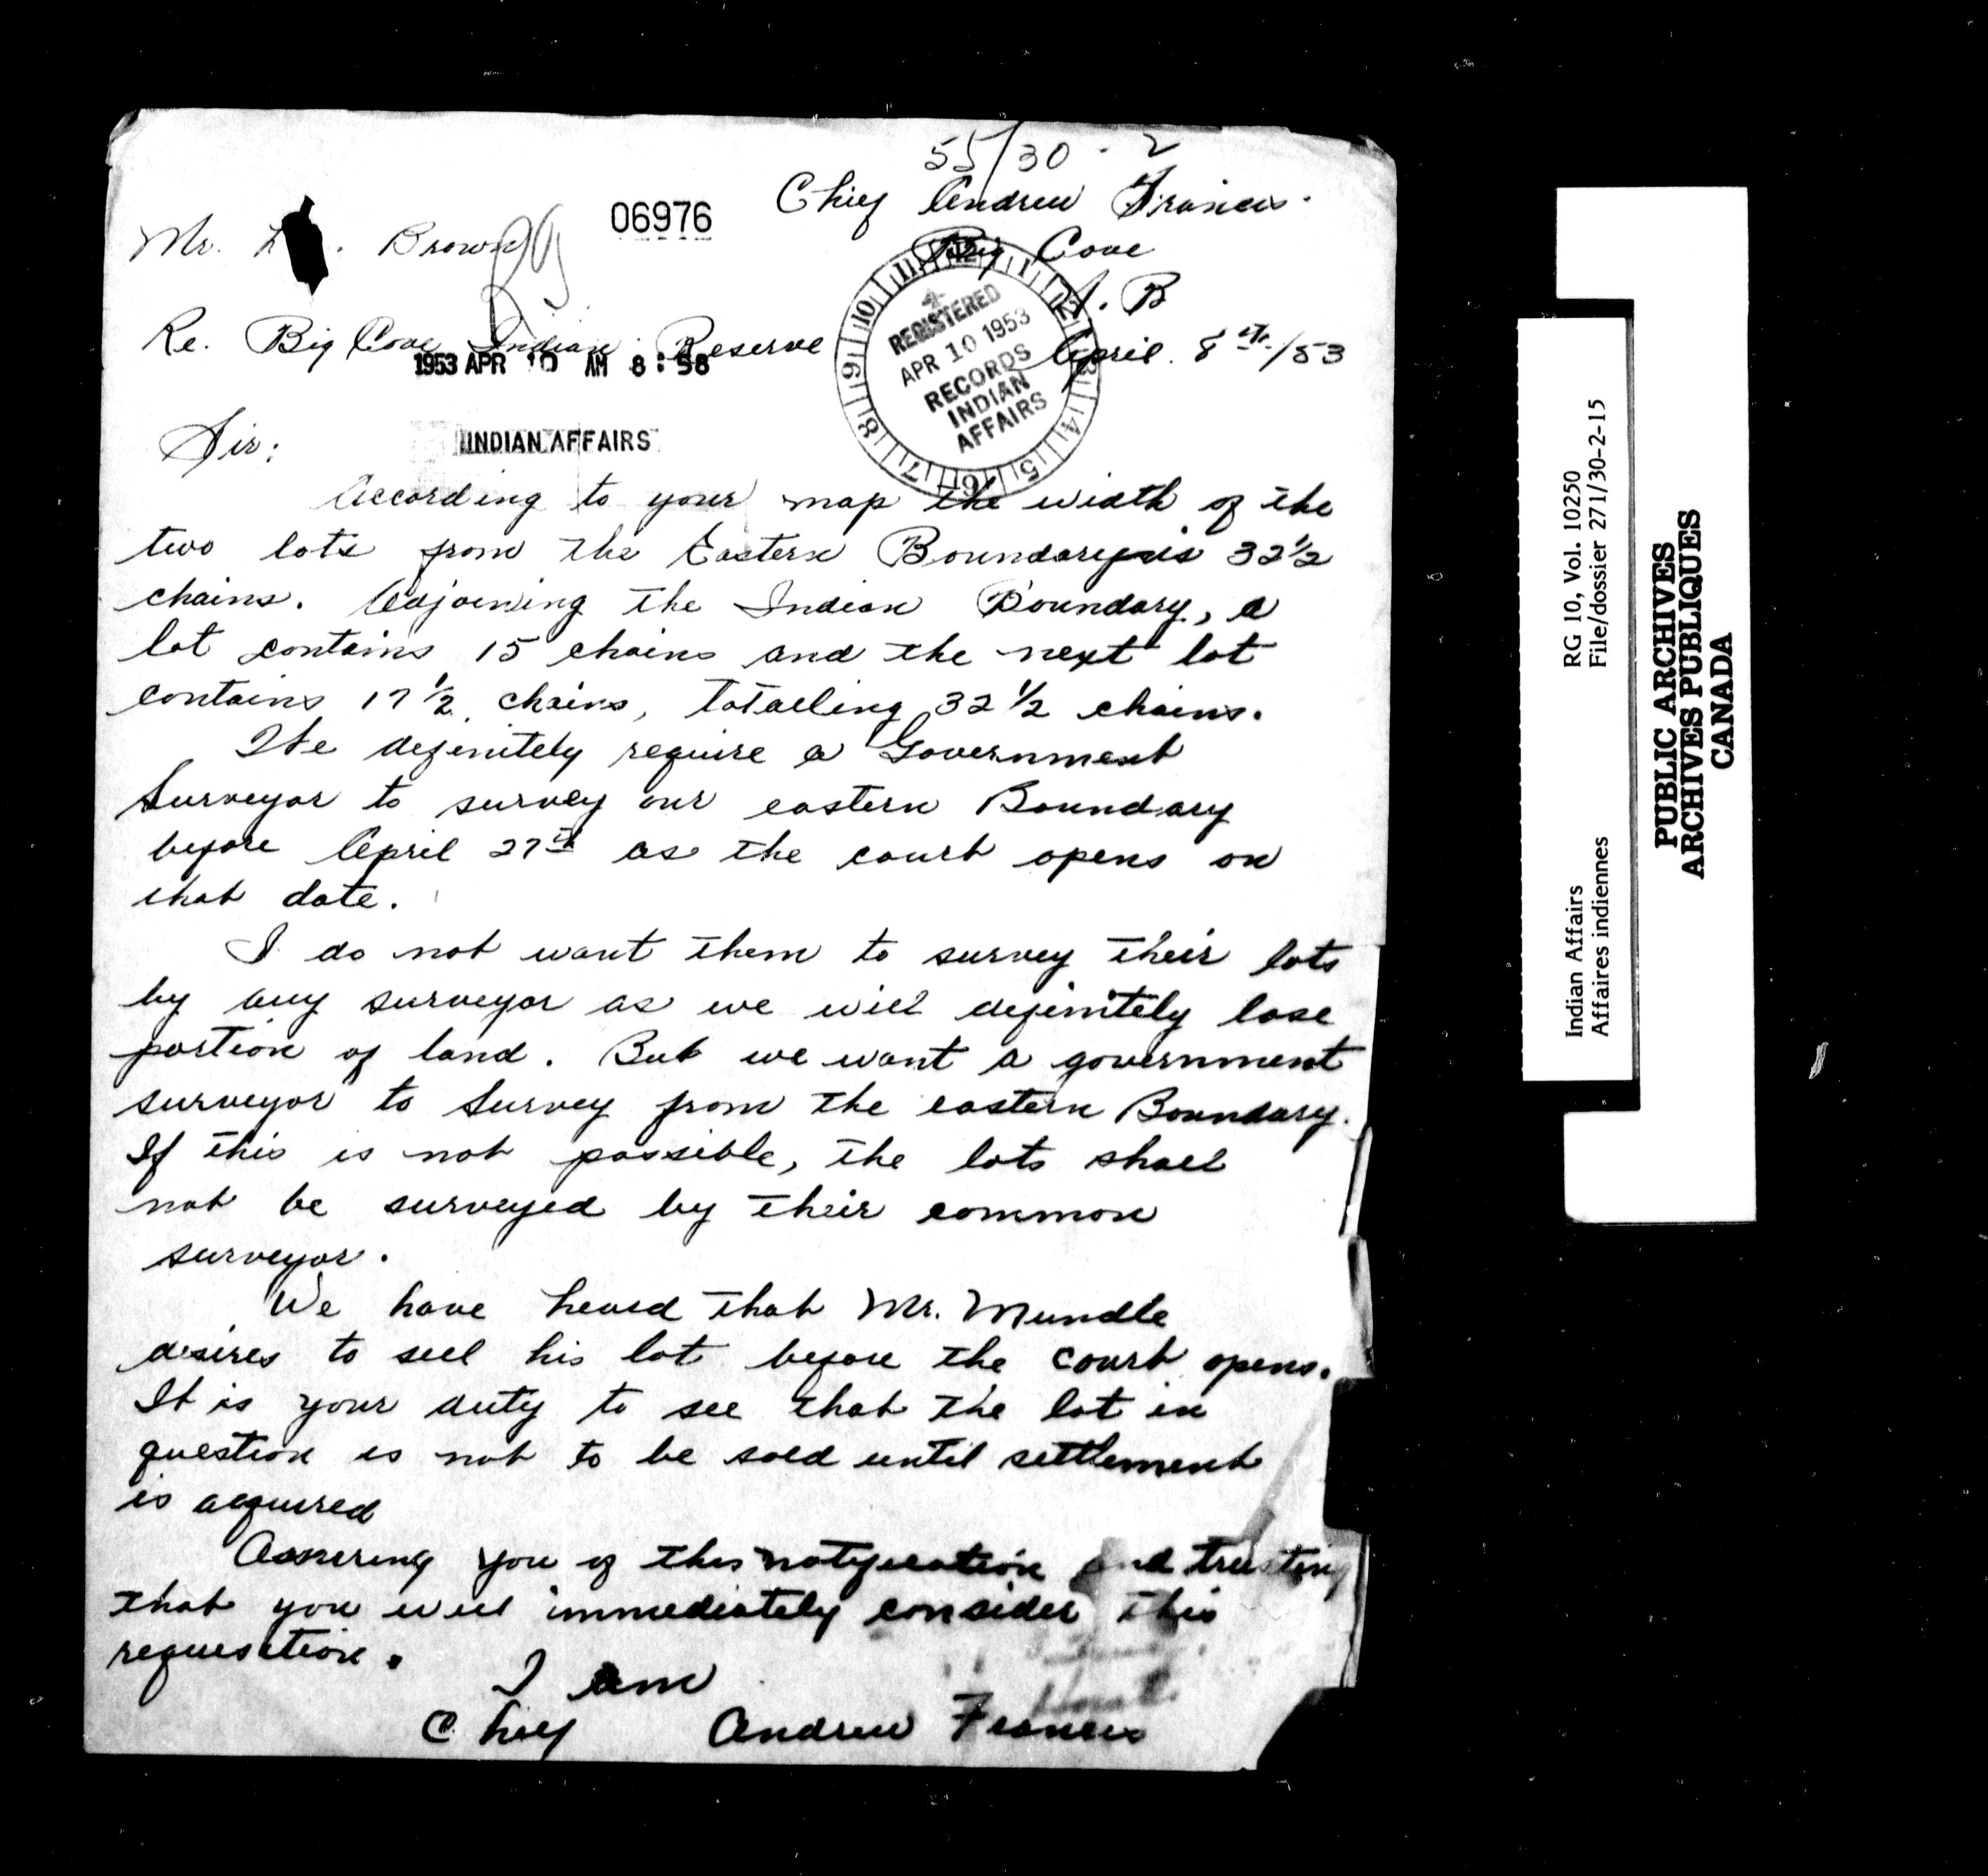 55/30-2
Chief Andrew Francis.
06976
Mr. L. Brown
Big Cove
N.B
Re. Big Cove Indian Reserve
April. 8th/53
1953 APR 10 AM 8:58
REGISTERED
APR 10 1953
RECORDS
INDIAN
AFFAIRS
11 12 1 2 3 4 5 6 7 8 9 10
Sir:
INDIAN AFFAIRS
According to your map the width of the
two lots from the Eastern Boundary is 32 1/2
chains. Adjoining the Indian Boundary, a
lot contains 15 chains and the next lot
contains 17 1/2 chains, totaelling 32 1/2 chains.
We definitely require a Government
Surveyor to survey our eastern Boundary
before April 27th as the court opens on
that date.
I do not want them to survey their lots
by any surveyor as we will definitely lose
portion of land. But we want a government
surveyor to survey from the eastern Boundary.
If this is not possible, the lots shall
not be surveyed by their common
surveyor.
We have heard that Mr. Mundle
desires to sell his lot before the court opens.
It is your duty to see that the lot in
question is not to be sold until settlement
is acquired
Assuring you of this notification and trusting
that you will immediately consider this
requisition.
I am
Chief Andrew Francis
Indian Affairs RG 10, Vol. 10250
Affaires indiennes File/dossier 271/30-2-15
PUBLIC ARCHIVES
ARCHIVES PUBLIQUES
CANADA